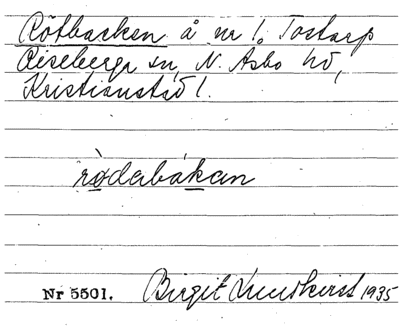 Rötbacken å nr 1. Tostarp
Riseberga sn, N. Åsbo hd,
Kristianstad l.
rödabákan
Nr 5501. Birgit Lundkvist 1935